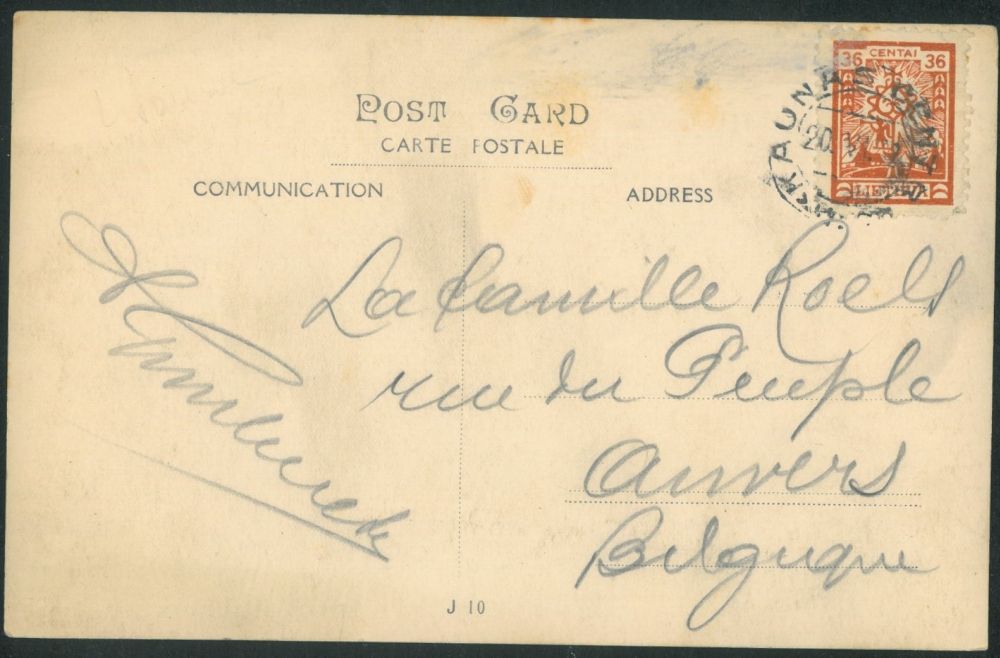 POST CARD
CARTE POSTALE
COMMUNICATION
ADDRESS
36 CENTAI 36
LIETUVA
KAUNAS CENTR
La famille Roels
rue du Peuple
Anvers
Belgique
J 10